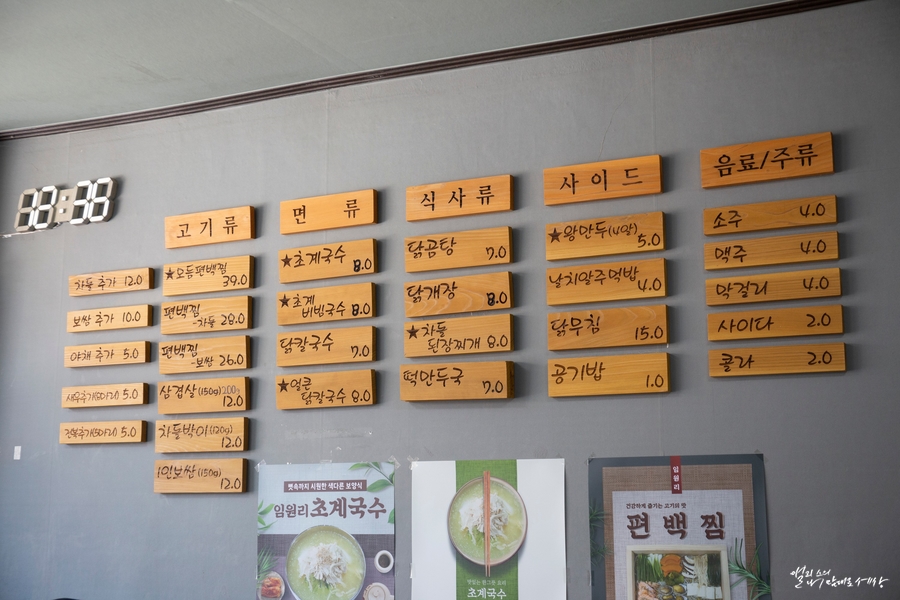 차돌 추가 12.0
보쌈 추가 10.0
야채 추가 5.0
새우추가(5마리) 5.0
전복추가(5마리) 5.0
고기류
★모듬편백찜 39.0
편백찜
-차돌 28.0
편백찜
-보쌈 26.0
삼겹살(150g)200g
12.0
차돌박이(120g)
12.0
1인보쌈(150g)
12.0
면 류
★초계국수 8.0
★초계
비빔국수 8.0
닭칼국수 7.0
★얼큰
닭칼국수 8.0
식사류
닭곰탕 7.0
닭개장 8.0
★차돌
된장찌개 8.0
떡만두국 7.0
사이드
★왕만두(4알) 5.0
날치알주먹밥 4.0
닭무침 15.0
공기밥 1.0
음료/주류
소주 4.0
맥주 4.0
막걸리 4.0
사이다 2.0
콜라 2.0
뼛속까지 시원한 색다른 보양식
임원리 초계국수
초계국수
임원리
건강하게 즐기는 고기의 맛
편백찜